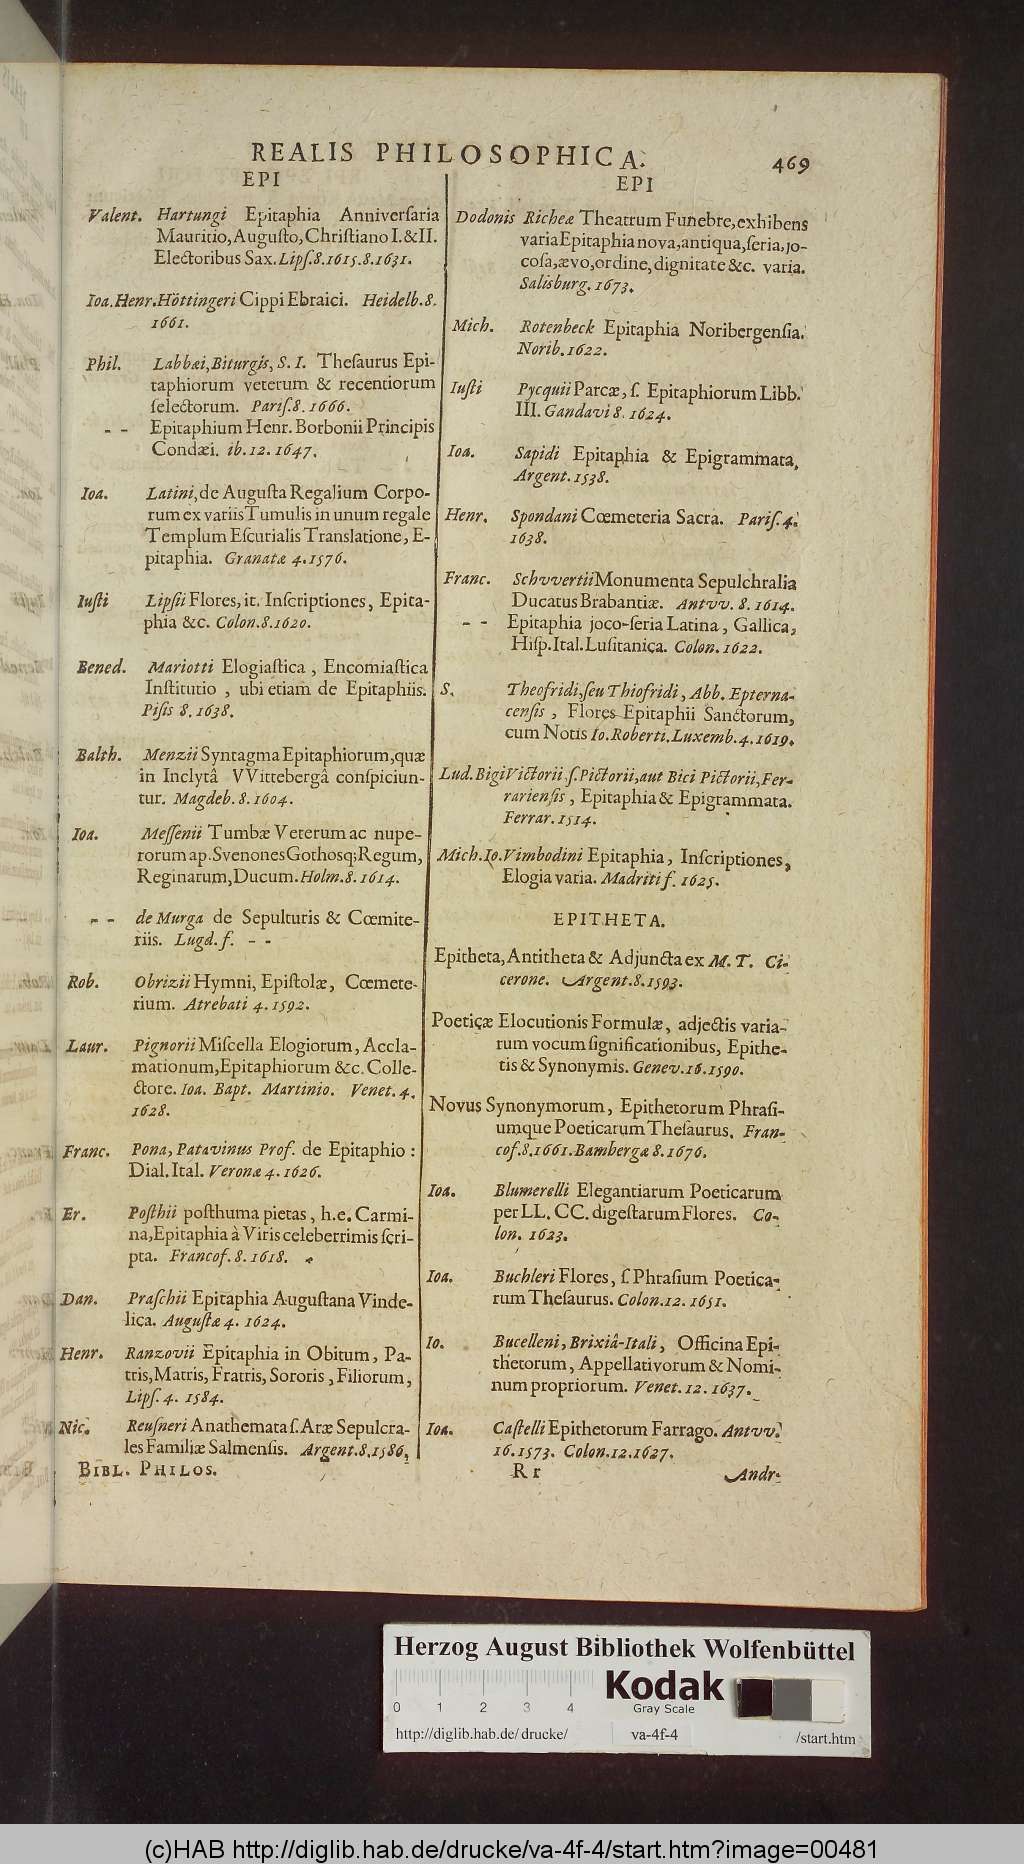 REALIS PHILOSOPHICA.
469
EPI
Valent. Hartungi Epitaphia Anniverſaria
Mauritio, Auguſto, Chriſtiano I. & II.
Electoribus Sax. Lipſ. 8. 1615. 8. 1631.
Ioa. Henr. Höttingeri Cippi Ebraici. Heidelb. 8.
1661.
Phil. Labbæi, Biturgis, S. I. Theſaurus Epi-
taphiorum veterum & recentiorum
ſelectorum. Pariſ. 8. 1666.
- - Epitaphium Henr. Borbonii Principis
Condæi. ib. 12. 1647.
Ioa. Latini, de Auguſta Regalium Corpo-
rum ex variis Tumulis in unum regale
Templum Eſcurialis Translatione, E-
pitaphia. Granatæ 4. 1576.
Iuſti Lipſii Flores, it. Inſcriptiones, Epita-
phia &c. Colon. 8. 1620.
Bened. Mariotti Elogiaſtica, Encomiaſtica
Inſtitutio, ubi etiam de Epitaphiis.
Piſis 8. 1638.
Balth. Menzii Syntagma Epitaphiorum, quæ
in Inclytâ VVittebergâ conſpiciun-
tur. Magdeb. 8. 1604.
Ioa. Meſſenii Tumbæ Veterum ac nupe-
rorum ap. Svenones Gothosq; Regum,
Reginarum, Ducum. Holm. 8. 1614.
- - de Murga de Sepulturis & Cœmite-
riis. Lugd. f. - -
Rob. Obrizii Hymni, Epiſtolæ, Cœmete-
rium. Atrebati 4. 1592.
Laur. Pignorii Miſcella Elogiorum, Accla-
mationum, Epitaphiorum &c. Colle-
ctore. Ioa. Bapt. Martinio. Venet. 4.
1628.
Franc. Pona, Patavinus Prof. de Epitaphio:
Dial. Ital. Veronæ 4. 1626.
Er. Poſthii poſthuma pietas, h. e. Carmi-
na, Epitaphia à Viris celeberrimis ſcri-
pta. Francof. 8. 1618.
Dan. Praſchii Epitaphia Auguſtana Vinde-
lica. Auguſtæ 4. 1624.
Henr. Ranzovii Epitaphia in Obitum, Pa-
tris, Matris, Fratris, Sororis, Filiorum,
Lipſ. 4. 1584.
Nic. Reuſneri Anathemata ſ. Aræ Sepulcra-
les Familiæ Salmenſis. Argent. 8. 1586.
BIBL. PHILOS.
EPI
Dodonis Richeæ Theatrum Funebre, exhibens
varia Epitaphia nova, antiqua, ſeria, jo-
coſa, ævo, ordine, dignitate &c. varia.
Salisburg. 1673.
Mich. Rotenbeck Epitaphia Noribergenſia.
Norib. 1622.
Iuſti Pycquii Parcæ, ſ. Epitaphiorum Libb.
III. Gandavi 8. 1624.
Ioa. Sapidi Epitaphia & Epigrammata,
Argent. 1538.
Henr. Spondani Cœmeteria Sacra. Pariſ. 4.
1638.
Franc. Schvvertii Monumenta Sepulchralia
Ducatus Brabantiæ. Antvv. 8. 1614.
- - Epitaphia joco-ſeria Latina, Gallica,
Hiſp. Ital. Luſitanica. Colon. 1622.
S. Theofridi, ſeu Thiofridi, Abb. Epterna-
cenſis, Flores Epitaphii Sanctorum,
cum Notis Io. Roberti. Luxemb. 4. 1619.
Lud. Bigi Victorii ſ. Pictorii, aut Bici Pictorii, Fer-
rarienſis, Epitaphia & Epigrammata.
Ferrar. 1514.
Mich. Io. Vimbodini Epitaphia, Inſcriptiones,
Elogia varia. Madriti f. 1625.
EPITHETA.
Epitheta, Antitheta & Adjuncta ex M. T. Ci-
cerone. Argent. 8. 1593.
Poeticæ Elocutionis Formulæ, adjectis varia-
rum vocum ſignificationibus, Epithe-
tis & Synonymis. Genev. 16. 1590.
Novus Synonymorum, Epithetorum Phraſi-
umque Poeticarum Theſaurus. Fran-
cof. 8. 1661. Bambergæ 8. 1676.
Ioa. Blumerelli Elegantiarum Poeticarum
per LL. CC. digeſtarum Flores. Co-
lon. 1623.
Ioa. Buchleri Flores, ſ. Phraſium Poetica-
rum Theſaurus. Colon. 12. 1651.
Io. Bucelleni, Brixiâ-Itali, Officina Epi-
thetorum, Appellativorum & Nomi-
num propriorum. Venet. 12. 1637.
Ioa. Caſtelli Epithetorum Farrago. Antvv.
16. 1573. Colon. 12. 1627.
R r
Andr.
Herzog August Bibliothek Wolfenbüttel
0 1 2 3 4
Kodak
Gray Scale
http://diglib.hab.de/drucke/ va-4f-4 /start.htm
(c)HAB http://diglib.hab.de/drucke/va-4f-4/start.htm?image=00481